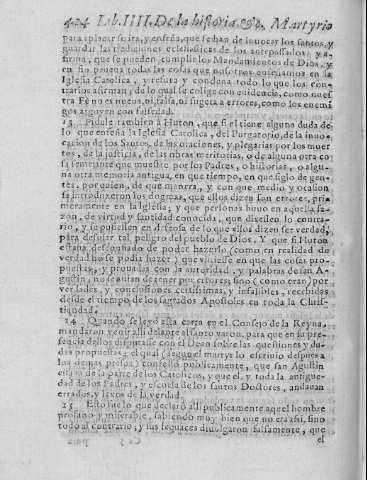 424 Lib. IIII. De la historia, &c. Martyrio
para aplacar su ira, y enseña, que se han de inuocar los santos, y
guardar las tradiciones eclesiasticas de los antepassados, y a-
firma, que se pueden cumplir los Mandamientos de Dios, y
en fin prueua todas las cosas que nosotros enseñamos en la
Iglesia Catolica, y refuta y condena todo lo que los con-
trarios afirman; de lo qual se colige con euidencia, como nues
tra Fè no es nueua, ni falsa, ni sugeta a errores, como los enemi
gos arguyen con falsedad.
13 Pidele tambien a Huton, que si el tiene alguna duda de
lo que enseña la Iglesia Catolica, del Purgatorio, de la inuo-
cacion de los Santos, de las oraciones, y plegarias por los muer
tos, de la justicia, de las obras meritorias, o de alguna otra co
sa semejante que muestre por los Padres, o historias, o algu-
na otra memoria antigua, en que tiempo, en que siglo de gen-
tes, por quien, de que manera, y con que medio y ocasion
se introduxeron los dogmas, que ellos dizen son errores, pri-
meramente en la Iglesia; y que personas huuo en aquella sa-
zon, de virtud y santidad conocida, que dixessen lo contra-
rio, y se pusiessen en defensa de lo que ellos dizen ser verdad,
para desuiar tal peligro del pueblo de Dios. Y que si Huton
estaua desconfiado de poder hazerlo (como en realidad de
verdad no se podia hazer) que viniesse en que las cosas pro-
puestas, y prouadas con la autoridad, y palabras de san A-
gustin, no deuian de tener por errores, sino (como eran) por
verdades, y conclusiones certissimas, y infalibles, recebidas
desde el tiempo de los sagrados Apostoles en toda la Chris-
tiandad.
14 Quando se leyò esta carta en el Consejo de la Reyna,
mandaron venir alli delante al santo varon, para que en su pre-
sencia dellos disputasse con el Dean sobre las questiones y du-
das propuestas; el qual (segun el martyr lo escriuio despues a
los demas presos) confessò publicamente, que san Agustin
estaua de la parte de los Catolicos, y que el, y toda la antigue-
dad de los Padres, y escuela de los santos Doctores, anduuan
errados, y lexos de la verdad.
15 Esto fue lo que declarò alli publicamente aquel hombre
profano y miserable, sabiendo muy bien que no era assi, sino
todo al contrario; y sus sequaces diuulgaron falsamente, que
el